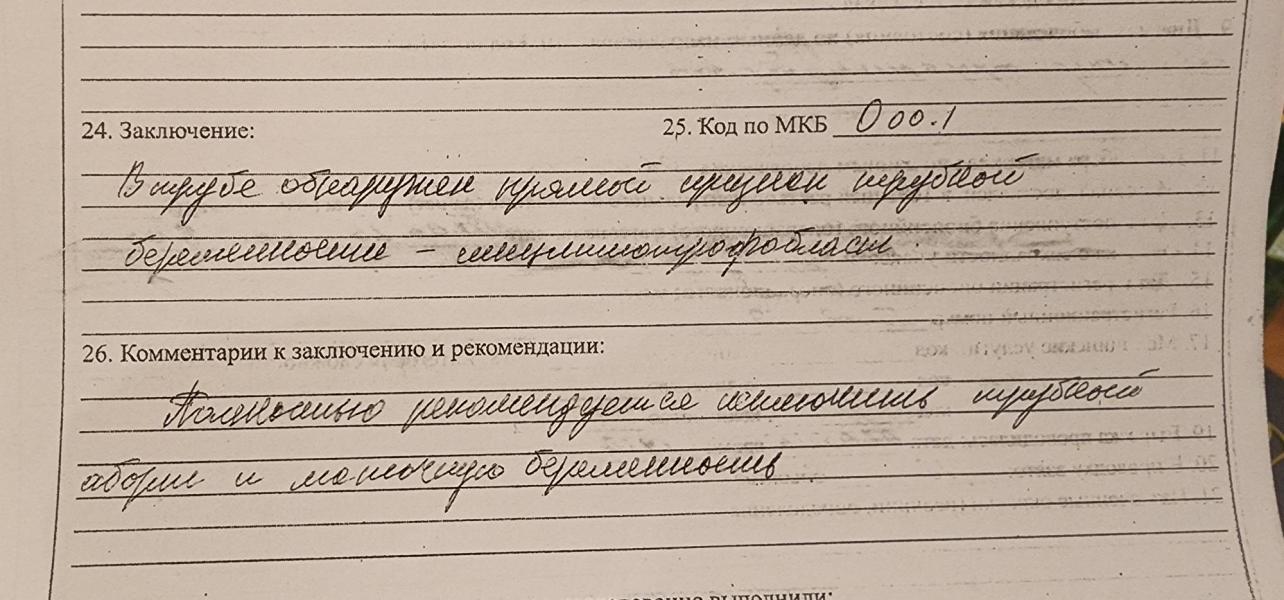 24. Заключение: 25. Код по МКБ O00.1
В трубе обнаружен прямой признак трубной
беременности – синцитиотрофобласт.
26. Комментарии к заключению и рекомендации:
Полностью рекомендуется исключить трубный
аборт и маточную беременность
выполнили: